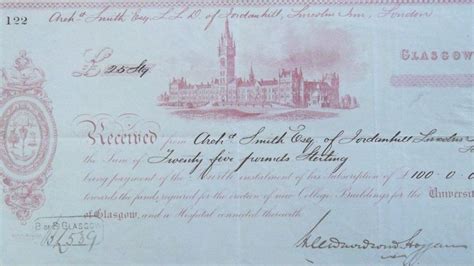 122
Archd Smith Esq. L.L.D. of Jordanhill, Lincolns Inn, London
GLASGOW
£ 25 Stg
Received from Archd Smith Esq of Jordanhill
the Sum of Twenty five pounds Sterling
being payment of the instalment of his subscription of £ 100-0-0
towards the fund required for the erection of new College Buildings for the University
of Glasgow, and a Hospital connected therewith
B of S GLASGOW